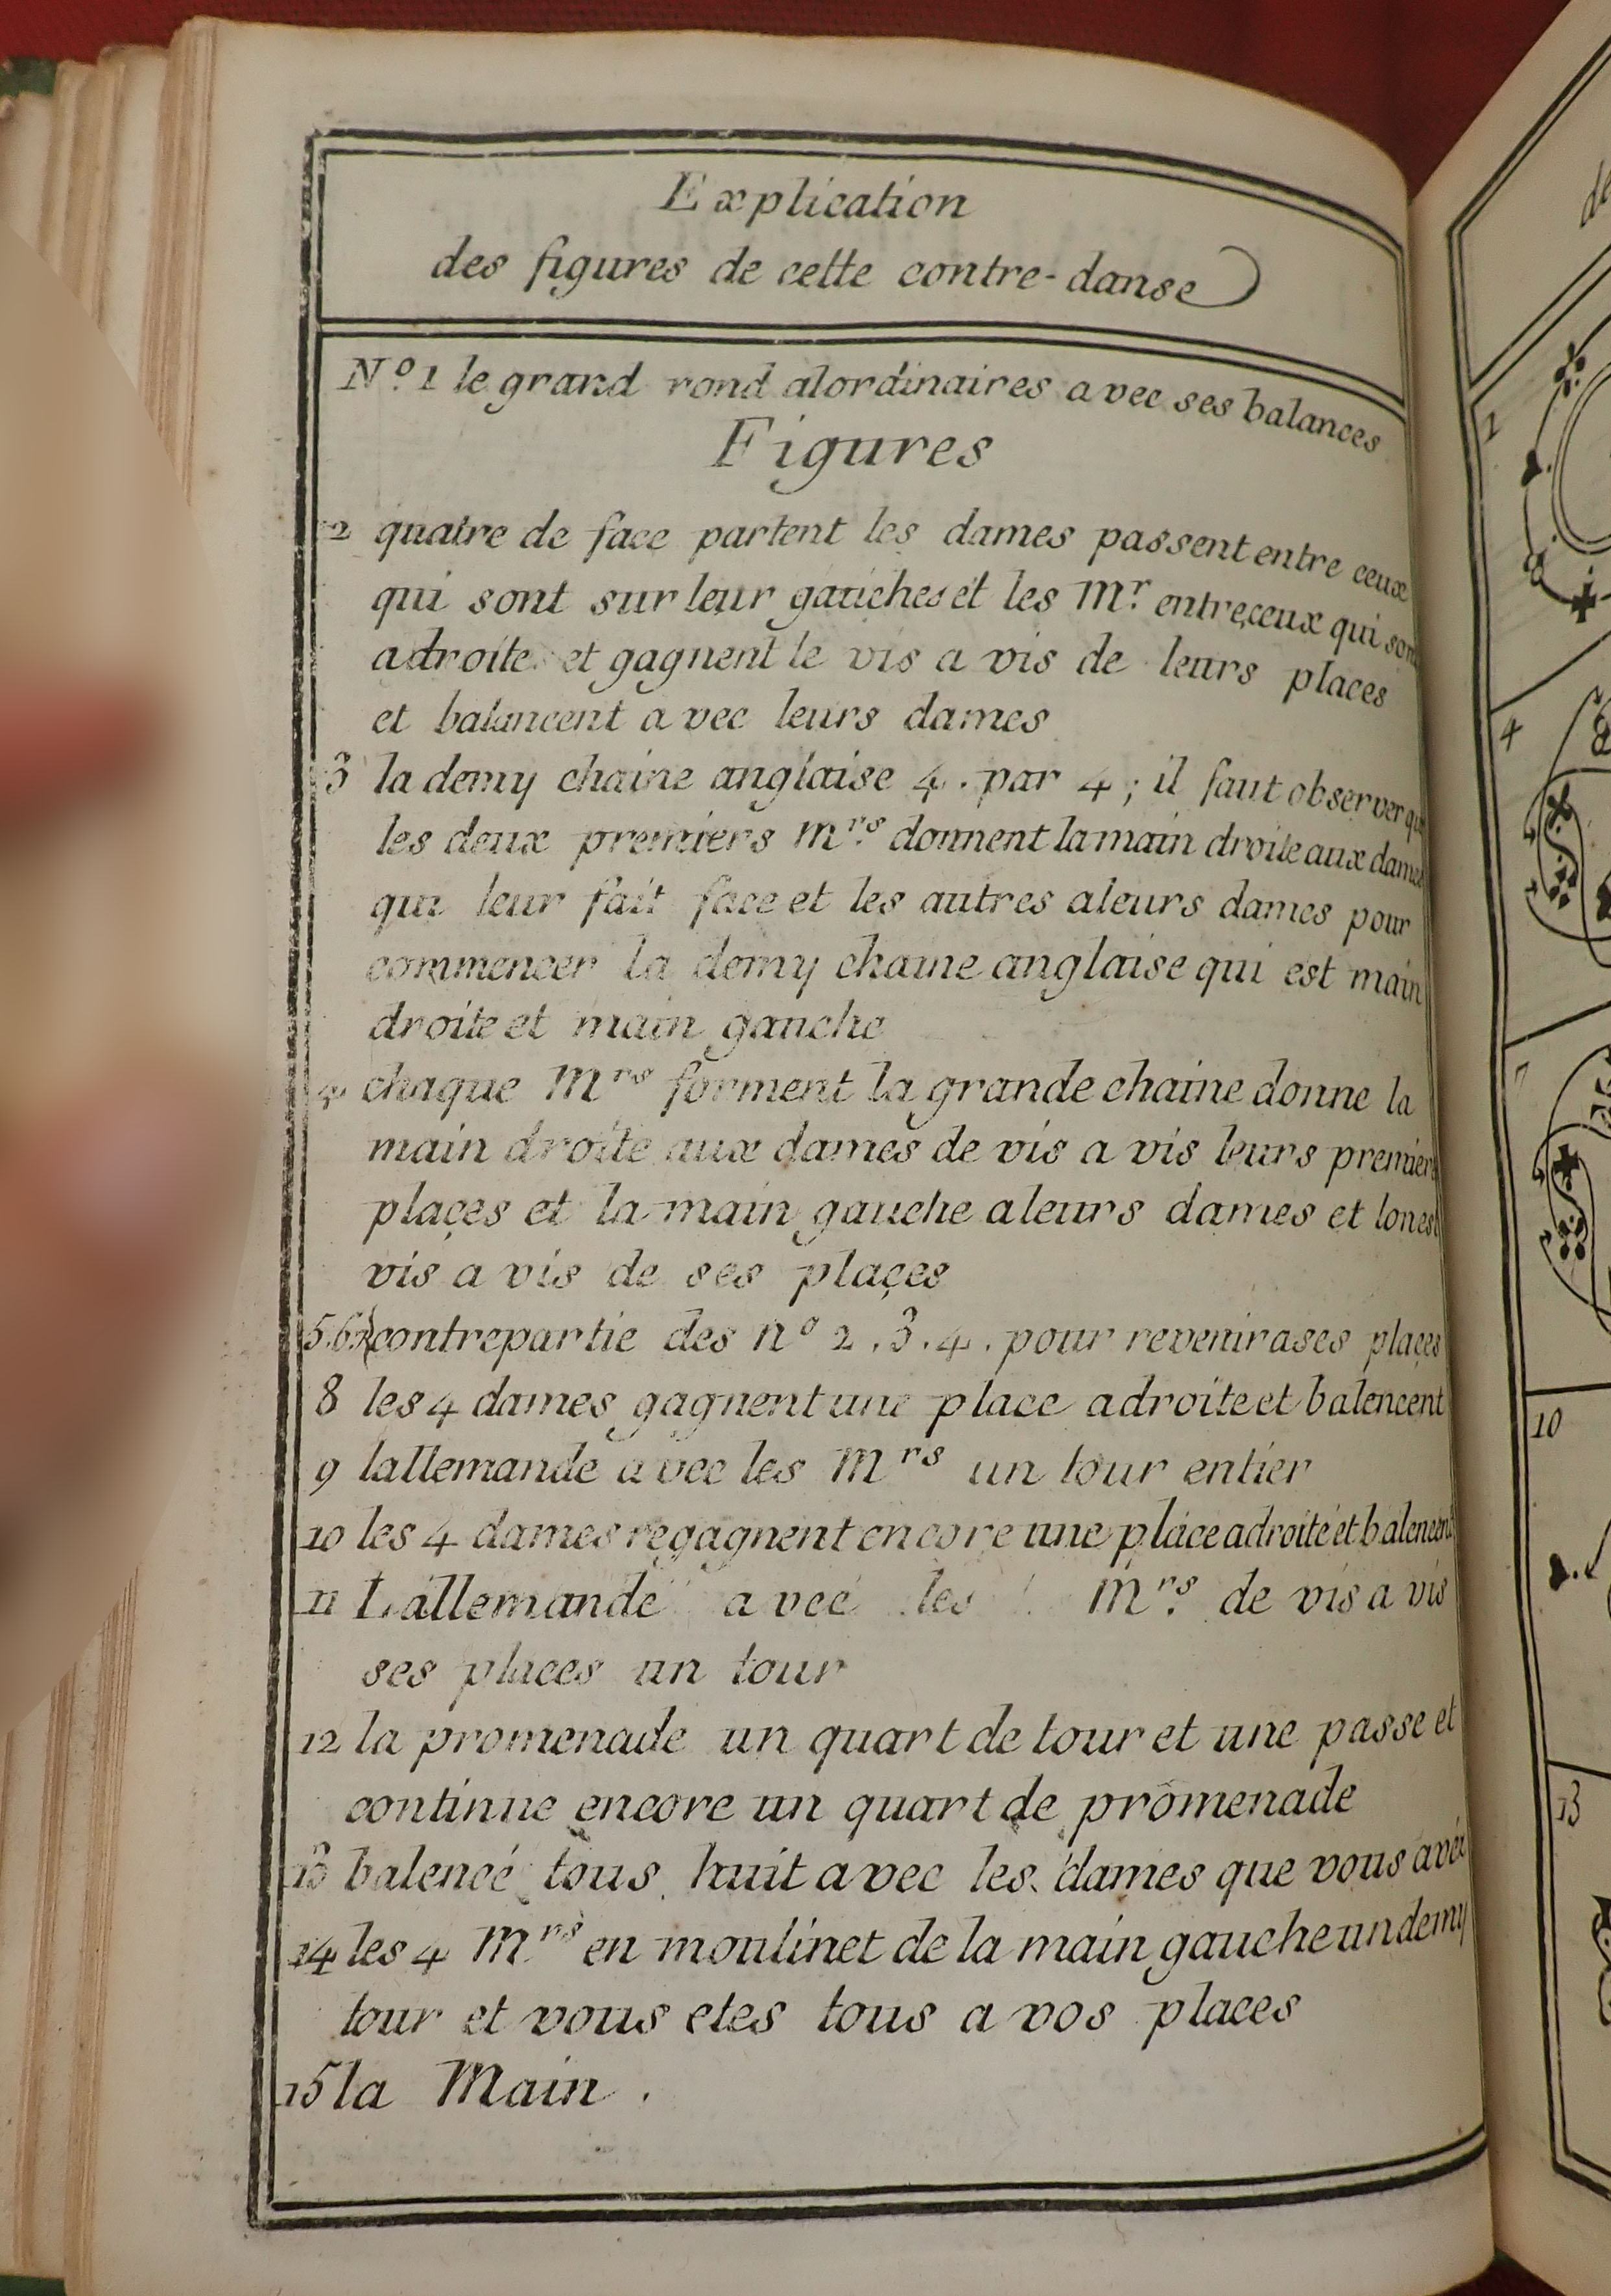 Explication
des figures de cette contre-danse
N.º 1 le grand rond alordinaires avec ses balances
Figures
2 quatre de face partent les dames passent entre ceux
qui sont sur leur gauches et les M.r entreceux qui sont
adroite et gagnent le vis a vis de leurs places
et balancent avec leurs dames
3 la demy chaine anglaise 4. par 4; il faut observer que
les deux premiers M.rs donnent la main droite aux dames
qui leur fait face et les autres aleurs dames pour
commencer la demy chaine anglaise qui est main
droite et main gauche
4 chaque M.rs forment la grande chaine donne la
main droite aux dames de vis a vis leurs premier
plaçes et la main gauche aleurs dames et lonest
vis a vis de ses plaçes
5.6.7 contrepartie des nº 2.3.4. pour revenir ases plaçes
8 les 4 dames gagnent une place adroite et balencent
9 lallemande avec les Mrs un tour entier
10 les 4 dames regagnent encore une place adroite et balencent
11 Lallemande avec les M.rs de vis a vis
ses places un tour
12 la promenade un quart de tour et une passe et
continue encore un quart de promenade
13 balencé tous huit avec les dames que vous avéz
14 les 4 M.rs en moulinet de la main gauche un demy
tour et vous etes tous a vos places
15 la Main.
2
4
7
10
13